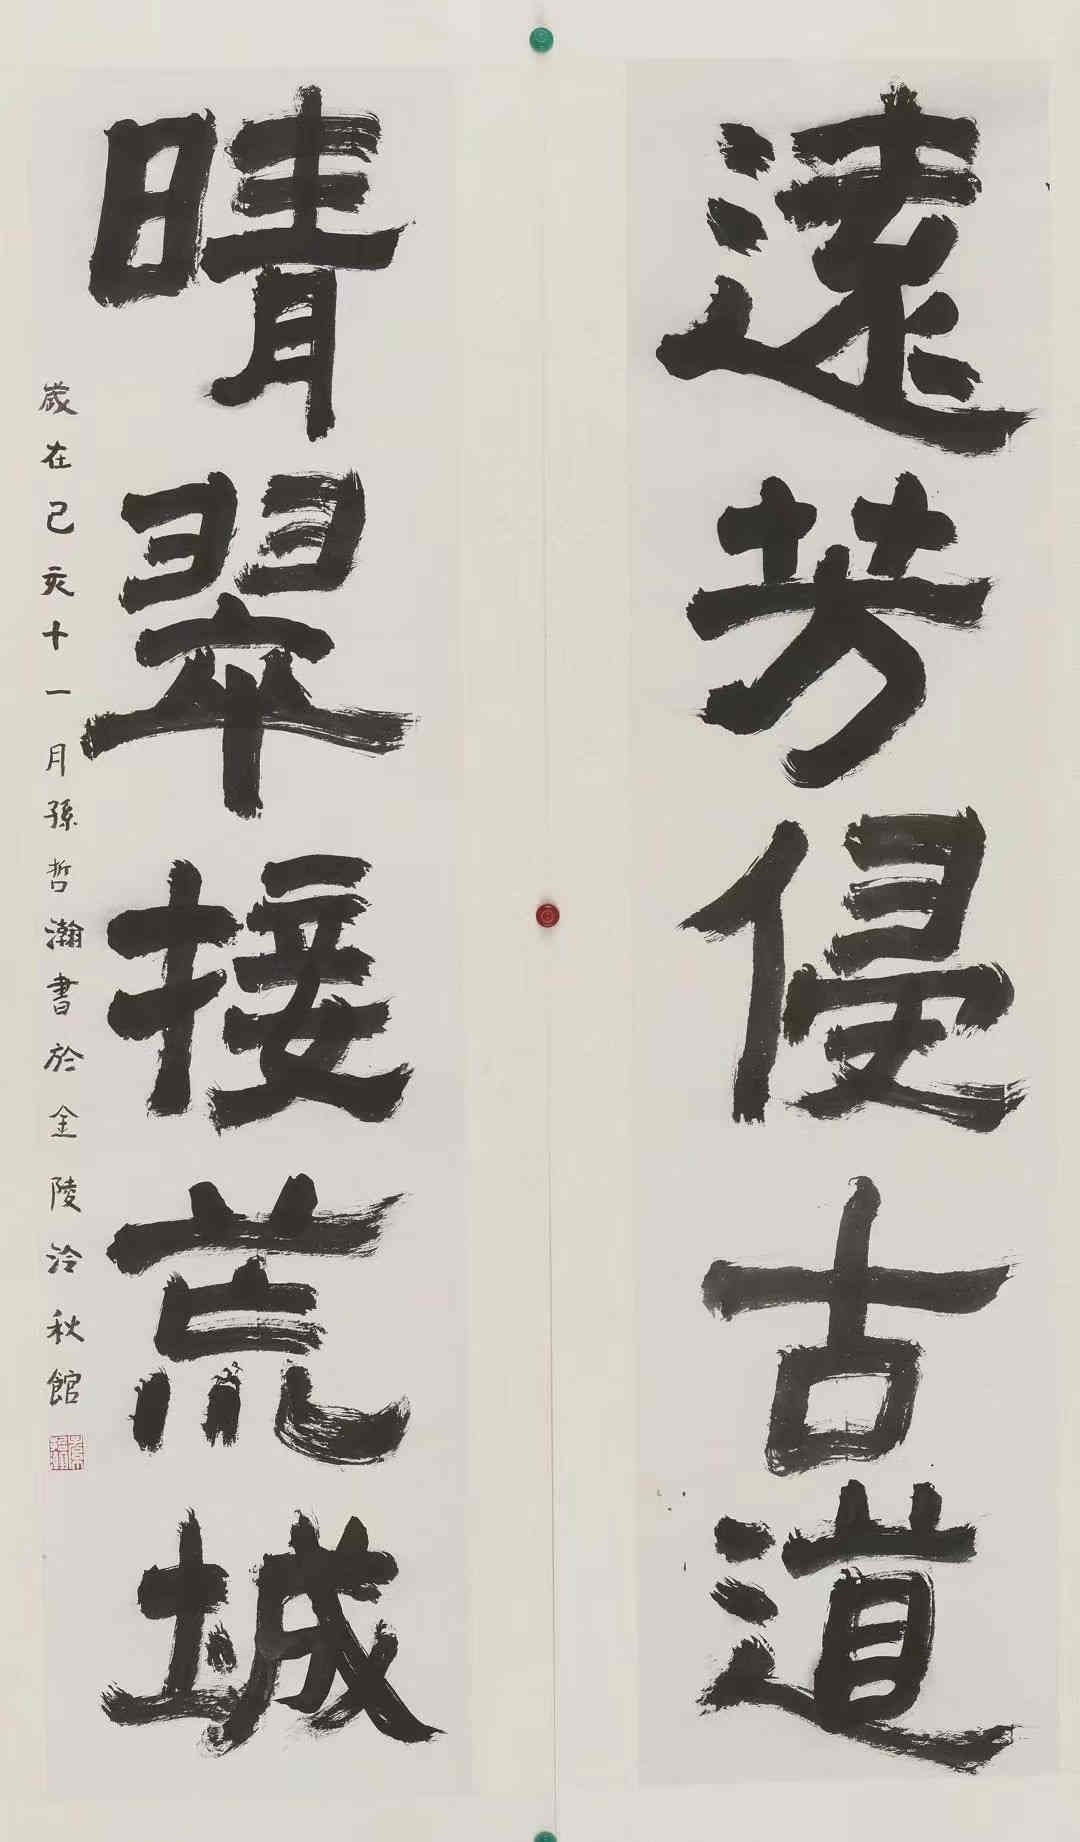 遠芳侵古道
晴翠接荒城
歲在己亥十一月孫哲瀚書於金陵泠秋館